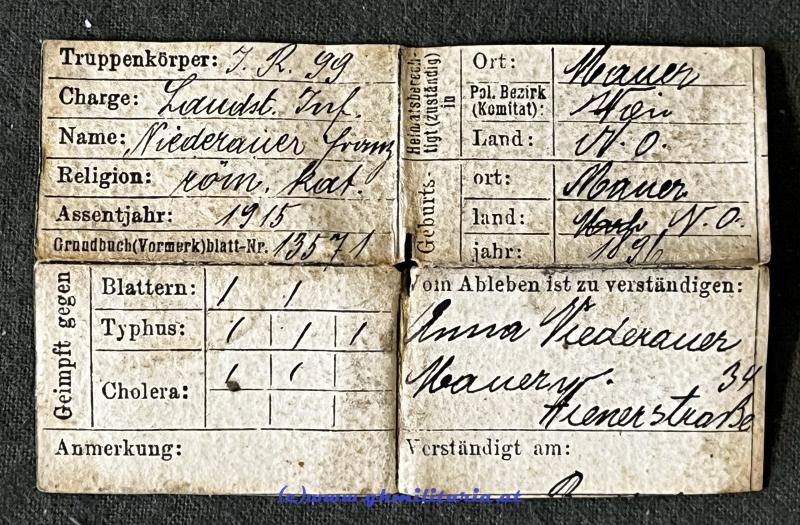 Truppenkörper: I. R. 99
Charge: Landst. Inf.
Name: Niederauer Franz
Religion: röm. kat.
Assentjahr: 1915
Grundbuch(Vormerk)blatt-Nr. 13571
Heimatsberech-
tigt (zuständig)
in
Ort: Mauer
Pol. Bezirk
(Komitat): Wien
Land: N. O.
Geburts-
ort: Mauer
land: N. O.
jahr: 1896
Geimpft gegen
Blattern: / /
Typhus: / / /
Cholera: / /
Anmerkung:
Vom Ableben ist zu verständigen:
Anna Niederauer
Mauer 34
Wienerstraße
Verständigt am:
(c)www.ghmilitaria.at